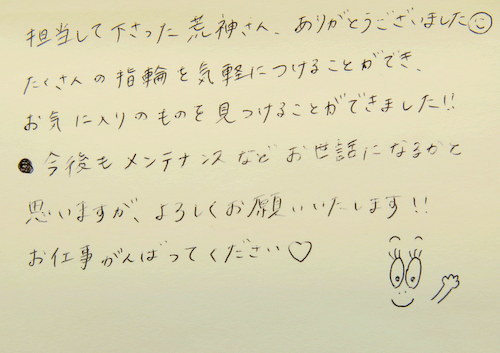 担当して下さった荒神さん、ありがとうございました☺
たくさんの指輪を気軽につけることができ、
お気に入りのものを見つけることができました!!
今後もメンテナンスなどお世話になるかと
思いますが、よろしくお願いいたします!!
お仕事がんばってください♡